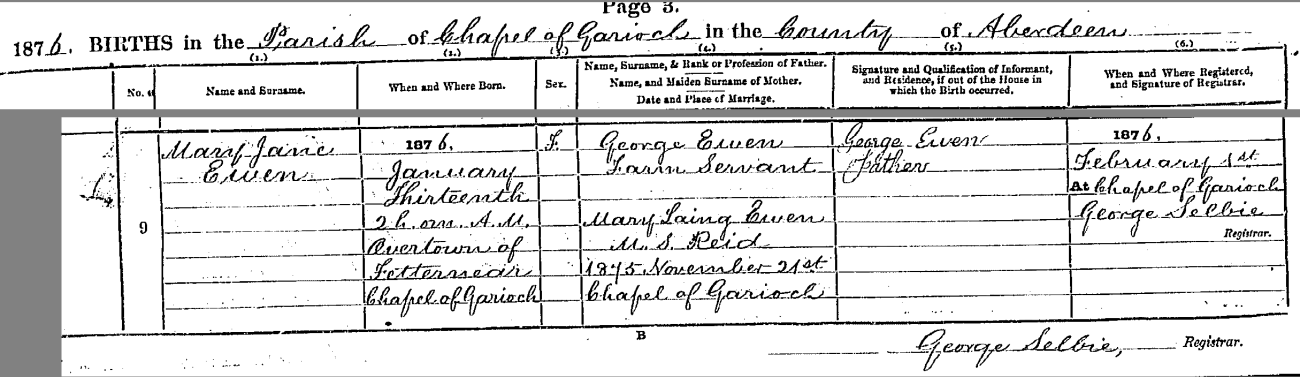 Page 3.
1876. BIRTHS in the Parish of Chapel of Garioch in the County of Aberdeen
(1.) (2.) (3.) (4.) (5.) (6.)
No.
Name and Surname.
When and Where Born.
Sex.
Name, Surname, & Rank or Profession of Father.
Name, and Maiden Surname of Mother.
Date and Place of Marriage.
Signature and Qualification of Informant,
and Residence, if out of the House in
which the Birth occurred.
When and Where Registered,
and Signature of Registrar.
9
Mary Jane
Ewen
1876.
January
Thirteenth
2 h. om. A.M.
Overtown of
Fetternear
Chapel of Garioch
F.
George Ewen
Farm Servant
Mary Laing Ewen
M. S. Reid
1875, November 21st
Chapel of Garioch
George Ewen
Father
1876,
February 1st
At Chapel of Garioch
George Selbie
Registrar.
B
George Selbie, Registrar.